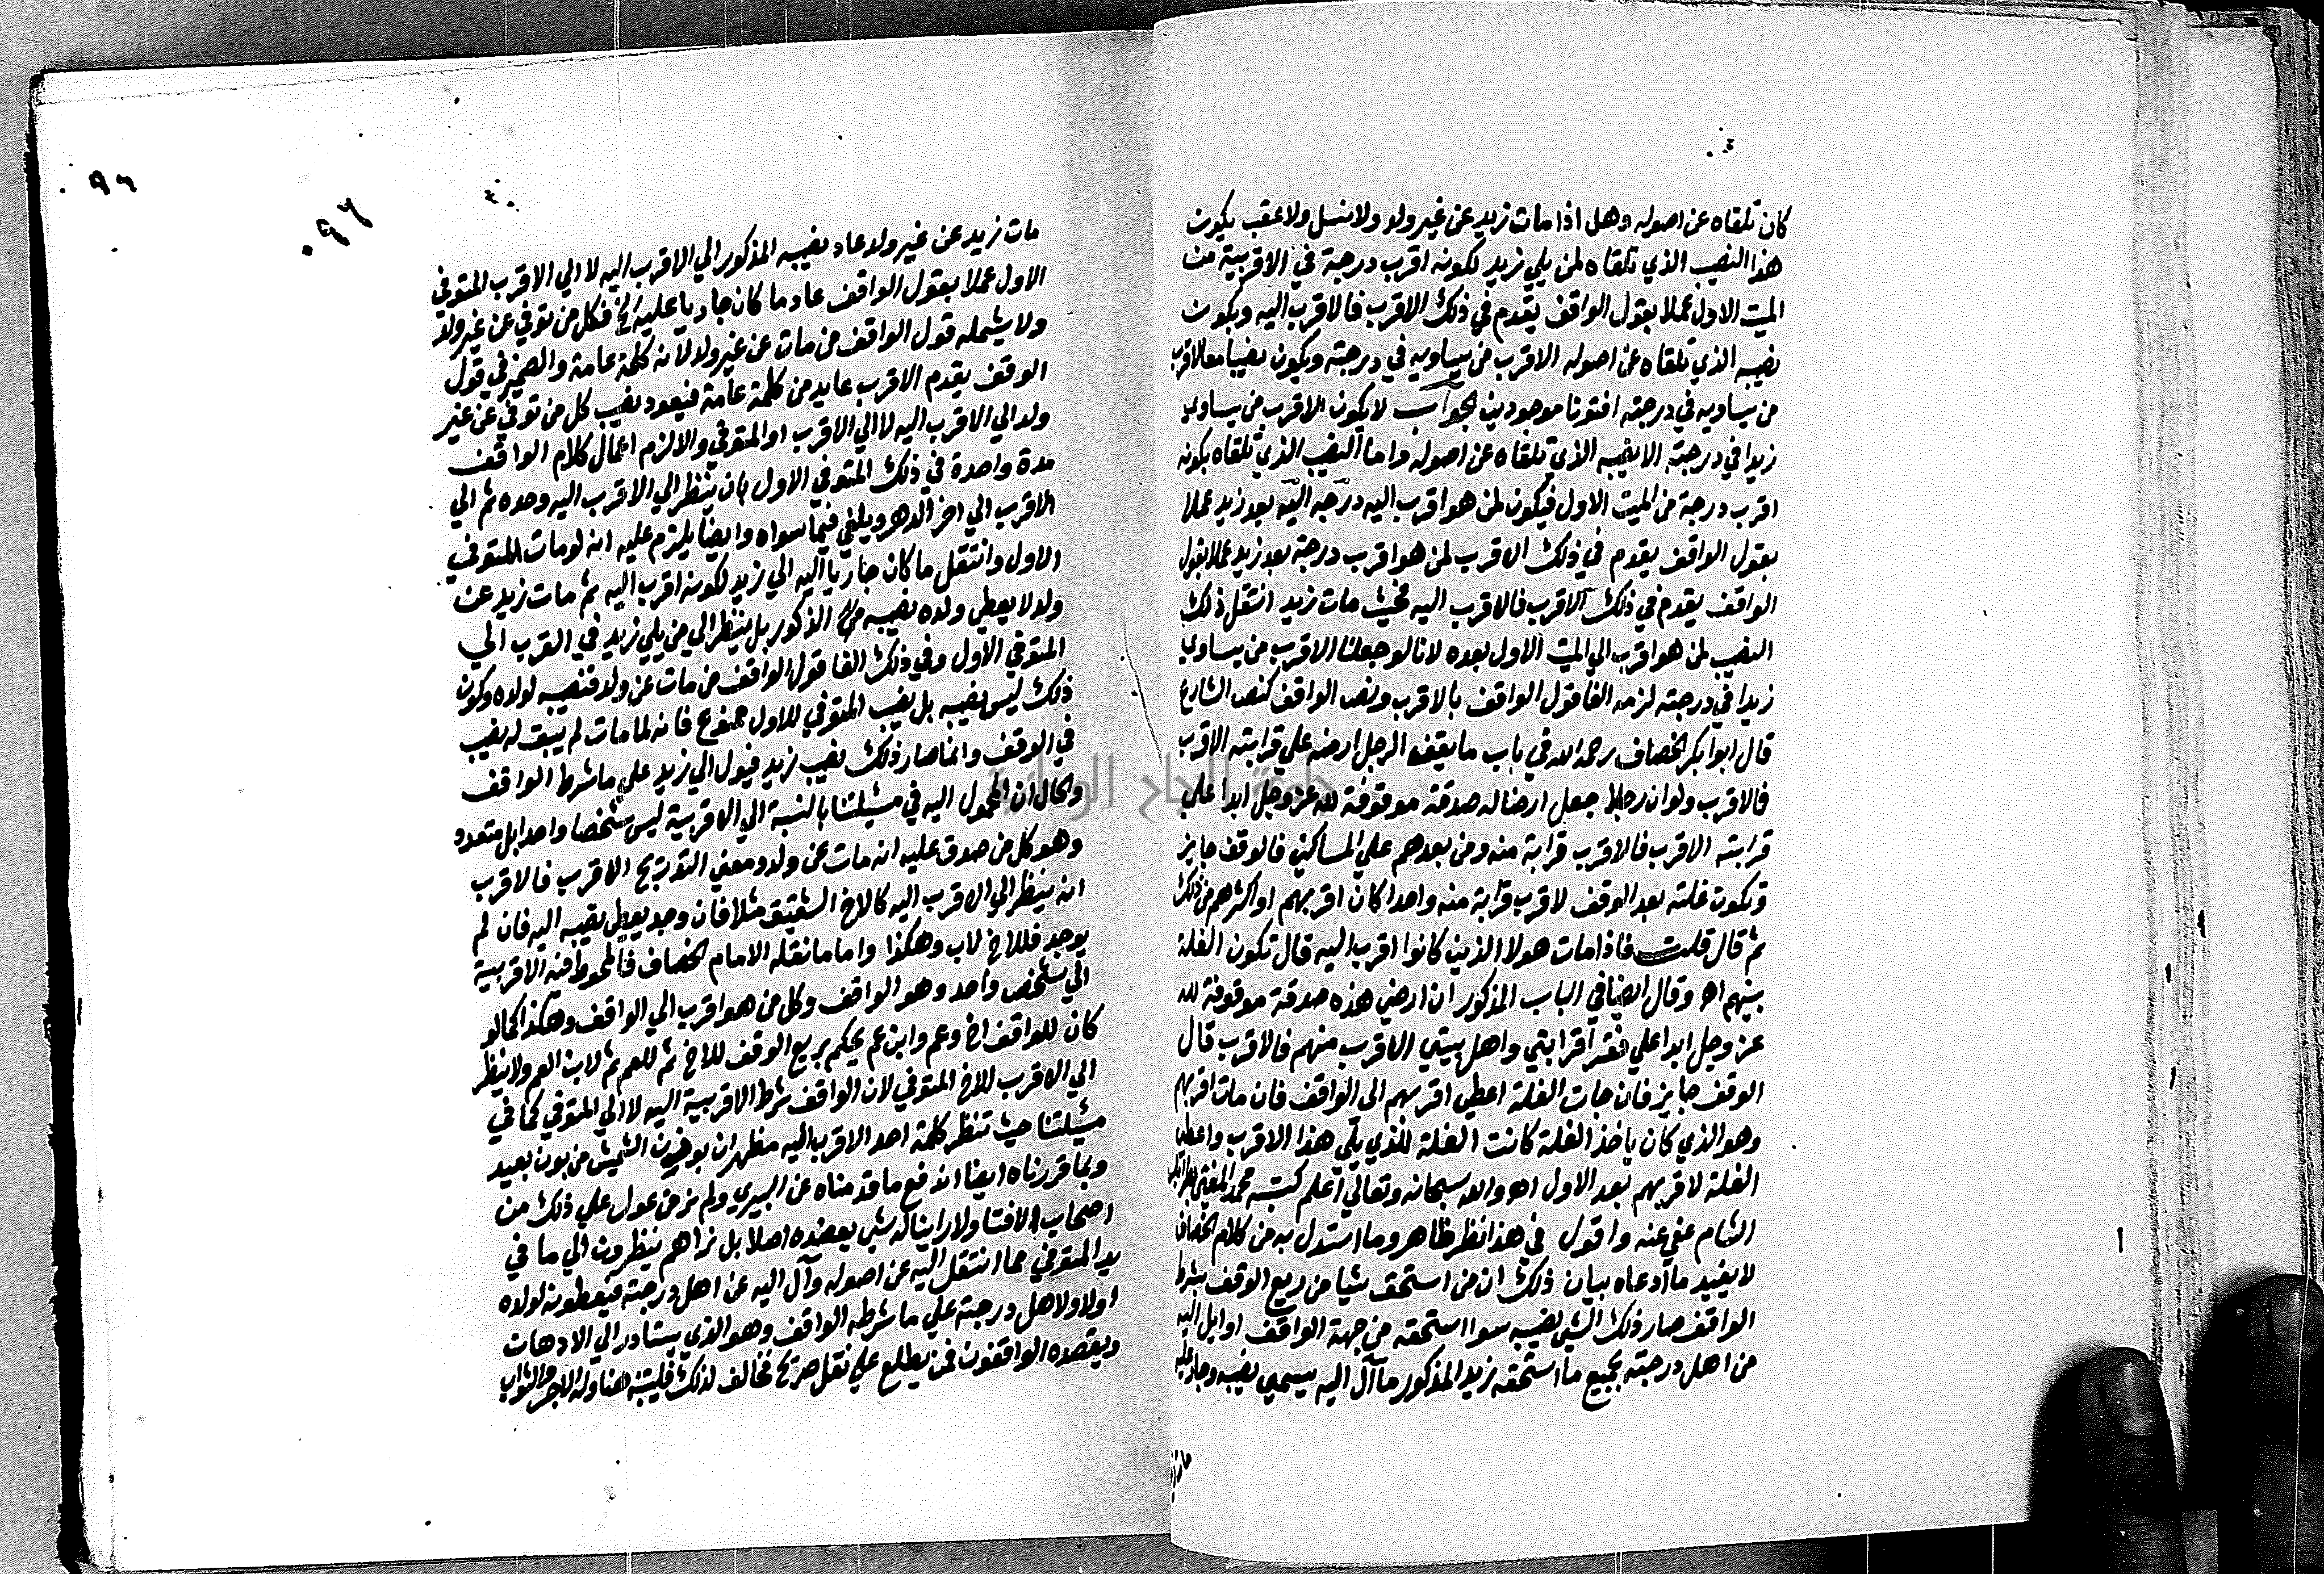 كان تلقاه عن اصوله وهل اذا مات زيد عن غير ولد ولا نسل ولا عقب يكون
هذا النصيب الذي تلقاه لمن يلي زيد لكونه اقرب درجة في الاقربية من
الميت الاول عملا بقول الواقف يقدم في ذلك الاقرب فالاقرب اليه ويكون
نصيبه الذي تلقاه عن اصوله الاقرب من يساويه في درجته ويكون نصيبا معا لاقرب
من يساويه في درجته افتونا موجودين الجواب لا يكون الاقرب من يساوي
زيدا في درجته الا نصيبه الذي تلقاه عن اصوله واما النصيب الذي تلقاه بكونه
اقرب درجة من الميت الاول فيكون لمن هو اقرب اليه درجه اليه بعد زيد عملا
بقول الواقف يقدم في ذلك الاقرب لمن هو اقرب درجة بعد زيد عملا بقول
الواقف يقدم في ذلك الاقرب فالاقرب اليه فحيث مات زيد انتقل ذلك
النصيب لمن هو اقرب الي الميت الاول بعده لانا لو جعلنا الاقرب من يساوي
زيدا في درجته لزمه الغا قول الواقف بالاقرب ونص الواقف كنص الشارع
قال ابوا بكر الخصاف رحمه الله في باب ما يقف الرجل ارضه علي قرابته الاقرب
فالاقرب ولو ان رجلا جعل ارضا له صدقة موقوفة لله عز وجل ابدا علي
قرابته الاقرب فالاقرب قرابة منه ومن بعدهم علي المساكين فالوقف جايز
وتكون غلته بعد الوقف لاقرب قرابة منه واحدا كان اقربهم او اكثرهم من ذلك
ثم قال قلت فاذا مات هولا الذين كانوا اقرب اليه قال تكون الغلة
بينهم اه وقال ايضا في الباب المذكور ان ارضي هذه صدقة موقوفة لله
عز وجل ابدا علي فقرا قرابتي واهل بيتي الاقرب منهم فالاقرب قال
الوقف جايز فان جات الغلة اعطي اقربهم الى الواقف فان مات اقربهم
وهو الذي كان ياخذ الغلة كانت الغلة للذي يلي هذا الاقرب واعطي
الغلة لاقربهم بعد الاول اه والله سبحانه وتعالي اعلم كتبه محمد المفتي
الشام عفي عنه واقول في هذا نظر ظاهر وما استدل به من كلام الخصاف
لا يفيد ما ادعاه بيان ذلك ان من استحق شيا من ريع الوقف بشرط
الواقف صار ذلك الشي نصيبه سوا استحقه من جهة الواقف او ايل اليه
من اهل درجته بجميع ما استحقه زيد المذكور ما آل اليه يسمى نصيبه وجاد عليه
مات زيد عن غير ولد عاد نصيبه المذكور الي الاقرب اليه لا الي الاقرب المتوفي
الاول عملا بقول الواقف عاد ما كان جاريا عليه الخ فكل من توفي عن غير ولد
ولا يشمله قول الواقف من مات عن غير ولد لانه كلمة عامة والضمير في قول
الوقف يقدم الاقرب عايد من كلمة عامة فيعود نصيب كل من توفي عن غير
ولد الي الاقرب اليه لا الي الاقرب او المتوفي والا لزم اعمال كلام الواقف
مدة واحدة في ذلك المتوفي الاول بان ينظر الي الاقرب اليه وحده ثم الي
الاقرب الي اخر الدهر ويلغي فيما سواه وايضا يلزم عليه انه لو مات المتوفي
الاول وانتقل ما كان جاريا اليه الي زيد لكونه اقرب اليه ثم مات زيد عن
ولد لا يعطي ولده نصيبه من المذكور بل ينظر الي من يلي زيد في القرب الي
المتوفي الاول وفي ذلك الغا قول الواقف من مات عن ولد فنصيبه لولده وكون
ذلك ليس نصيبه بل نصيب المتوفي للاول ممنوع فانه لما مات لم يبق له نصيب
في الوقف وانما صار ذلك نصيب زيد فيول الي زيد على ما شرط الواقف
والحال ان المحمول اليه في مسئلتنا بالنسبة الي الاقربية ليس شخصا واحدا بل متعدد
وهو كل من صدق عليه انه مات عن ولد ومعني التدريج الاقرب فالاقرب
انه ينظر الي الاقرب اليه كالاخ الشقيق مثلا فان وجد يعطي نصيبه اليه فان لم
يوجد فللاخ لاب وهكذا واما ما نقله الامام الخصاف فالملحوظ فيه الاقربية
الي شخص واحد وهو الواقف وكل من هو اقرب الي الواقف وهكذا كما لو
كان للواقف اخ وعم وابن عم يحكم بريع الوقف للاخ ثم للعم ثم لابن العم ولا ينظر
الي الاقرب للاخ المتوفي لان الواقف شرط الاقربية اليه لا الي المتوفي كما في
مسئلتنا حيث تنظر كلمة احد الاقرب اليه من بون بعيد
وبما قررناه ايضا اندفع ما قدمناه عن البيري ولم نر من عول علي ذلك من
اصحاب الافتا ولا راينا له شي يعضده اصلا بل نراهم ينظرون الي ما في
يد المتوفي مما انتقل اليه عن اصوله وآل اليه عن اهل درجته فيعطونه لولده
اولا ولاهل درجته علي ما شرطه الواقف وهو الذي يتبادر الي الاذهان
ويقصده الواقفون فمن يطلع علي نقل صريح مخالف لذلك فليثبته هنا وله الاجر والثواب